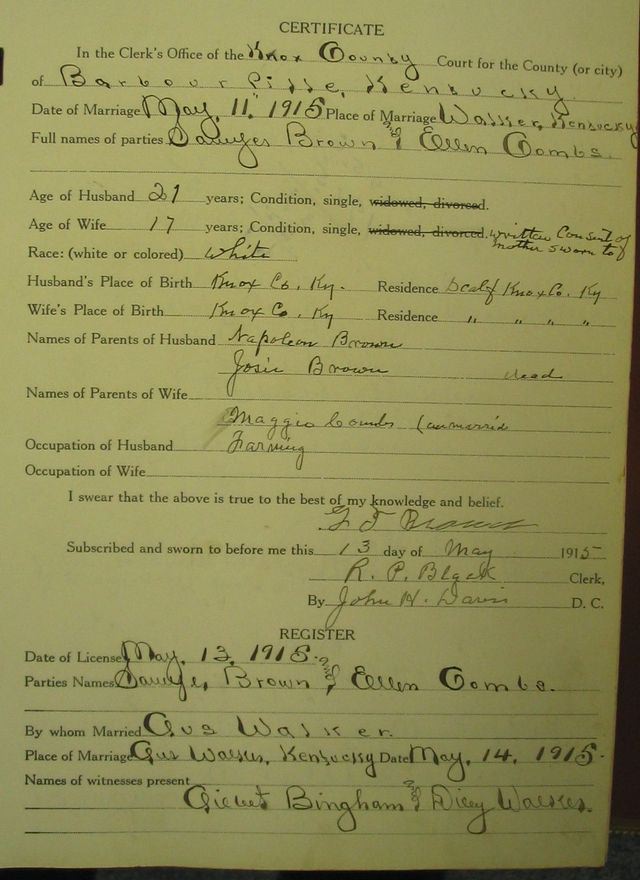 CERTIFICATE
In the Clerk's Office of the Knox County Court for the County (or city)
of Barbourville, Kentucky
Date of Marriage May, 11, 1915 Place of Marriage Walker, Kentucky
Full names of parties Brown & Ellen Combs.
Age of Husband 21 years; Condition, single, widowed, divorced.
Age of Wife 17 years; Condition, single, widowed, divorced. written Consent of
mother sworn to
Race: (white or colored) White
Husband's Place of Birth Knox Co. Ky. Residence Scalf Knox Co. Ky
Wife's Place of Birth Knox Co. Ky Residence " " " "
Names of Parents of Husband Napoleon Brown
Josie Brown dead
Names of Parents of Wife
Maggie Combs (unmarried
Occupation of Husband Farming
Occupation of Wife
I swear that the above is true to the best of my knowledge and belief.
Brown
Subscribed and sworn to before me this 13 day of May 1915
R. P. Black Clerk,
By John H. Davis D. C.
REGISTER
Date of License May, 13, 1915.
Parties Names Brown & Ellen Combs.
By whom Married Gus Walker.
Place of Marriage Gus Walker, Kentucky Date May, 14, 1915
Names of witnesses present
Bingham & Walker.